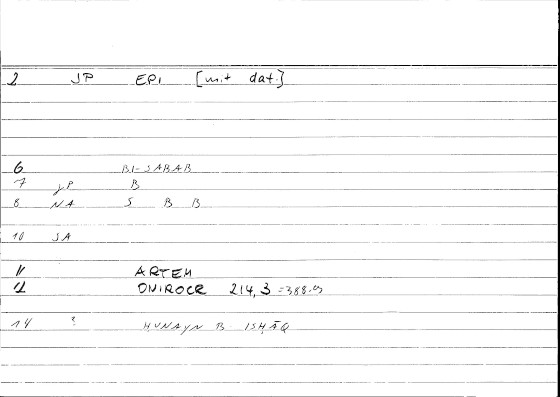 2 JP EPI [mit dat.]
6 BI-SABAB
7 JP B
8 NA S B B
10 SA
11 ARTEM
12 ONIROCR 214,3 =388.9
14 ? HUNAYN B ISHĀQ